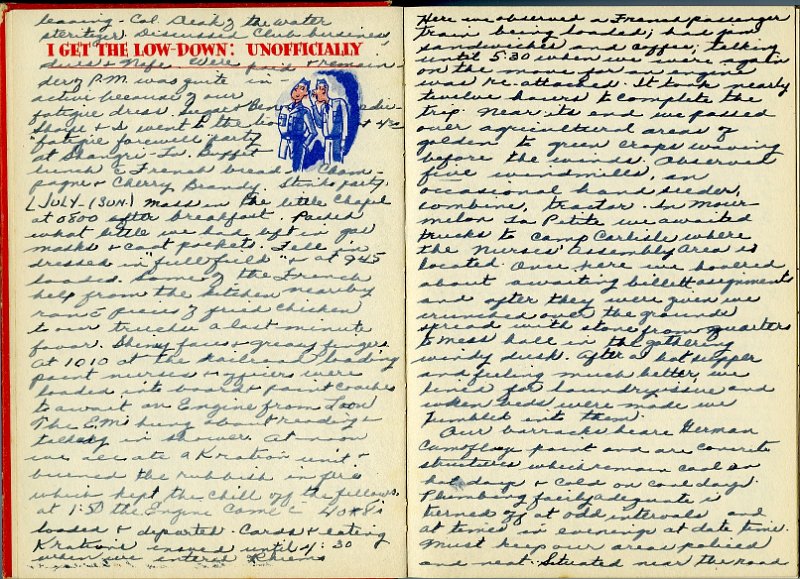 leaving - Col. Deak & the water
steritzer. Discussed Club business,
I GET THE LOW-DOWN: UNOFFICIALLY
dues & Were paid & remain-
der of P.M. was quite in -
active because of our
fatigue dress.
Sharpe & I went to the
"fatigue farewell party"
at Shangri-La. Buffet
lunch c French bread - Cham-
pagne & Cherry Brandy. party.
1 JULY - (SUN.) Mass in the little Chapel
at 0800 after breakfast. Packed
what little we had left in gas
masks & coat pockets. Fell in
dressed in "full field" & at 945
loaded. Some of the French
help from the kitchen nearby
ran c pieces of fried chicken
to our trucks a last minute
favor. Shiny faces & greasy fingers
at 1010 at the railroad loading
point nurses & officers were
loaded into coaches
to await an Engine from Laon
The E.M. hung about reading &
talking in shower. At noon
we all ate a K ration unit &
burned the rubbish in fire
which kept the chill off the fellows.
at 1:50 the Engine came c 40 & 8's
loaded & departed. Cards & eating
K rations ensued until 4:30
when we entered Rheims
Here we observed a French passenger
train being loaded; had jam
sandwiches and coffee; talking
until 5:30 when we were again
on the move for an engine
was re-attached. It took nearly
twelve hours to complete the
trip. Near its end we passed
over agricultural areas of
golden to green crops waving
before the winds. Observed
five windmills, an
occasional hand seeder,
combine, tractor. In Mour-
melon La Petite we awaited
trucks to Camp Carlisle where
the Nurses' Assembly Area is
located. Once here we hovered
about awaiting billett assignments
and after they were given we
crunched over the grounds
spread with stone from quarters
to mess hall in the gathering
windy dusk. After a hot supper
and feeling much better, we
lined for laundry issue and
when beds were made we
tumbled into them.
Our barracks bear German
camoflage paint and are concrete
structures which remain cool on
hot days & cold on cool days.
Plumbing fairly adequate is
turned off at odd intervals and
at times in evenings at date time.
Must keep our areas policed
and neat. Situated near the road